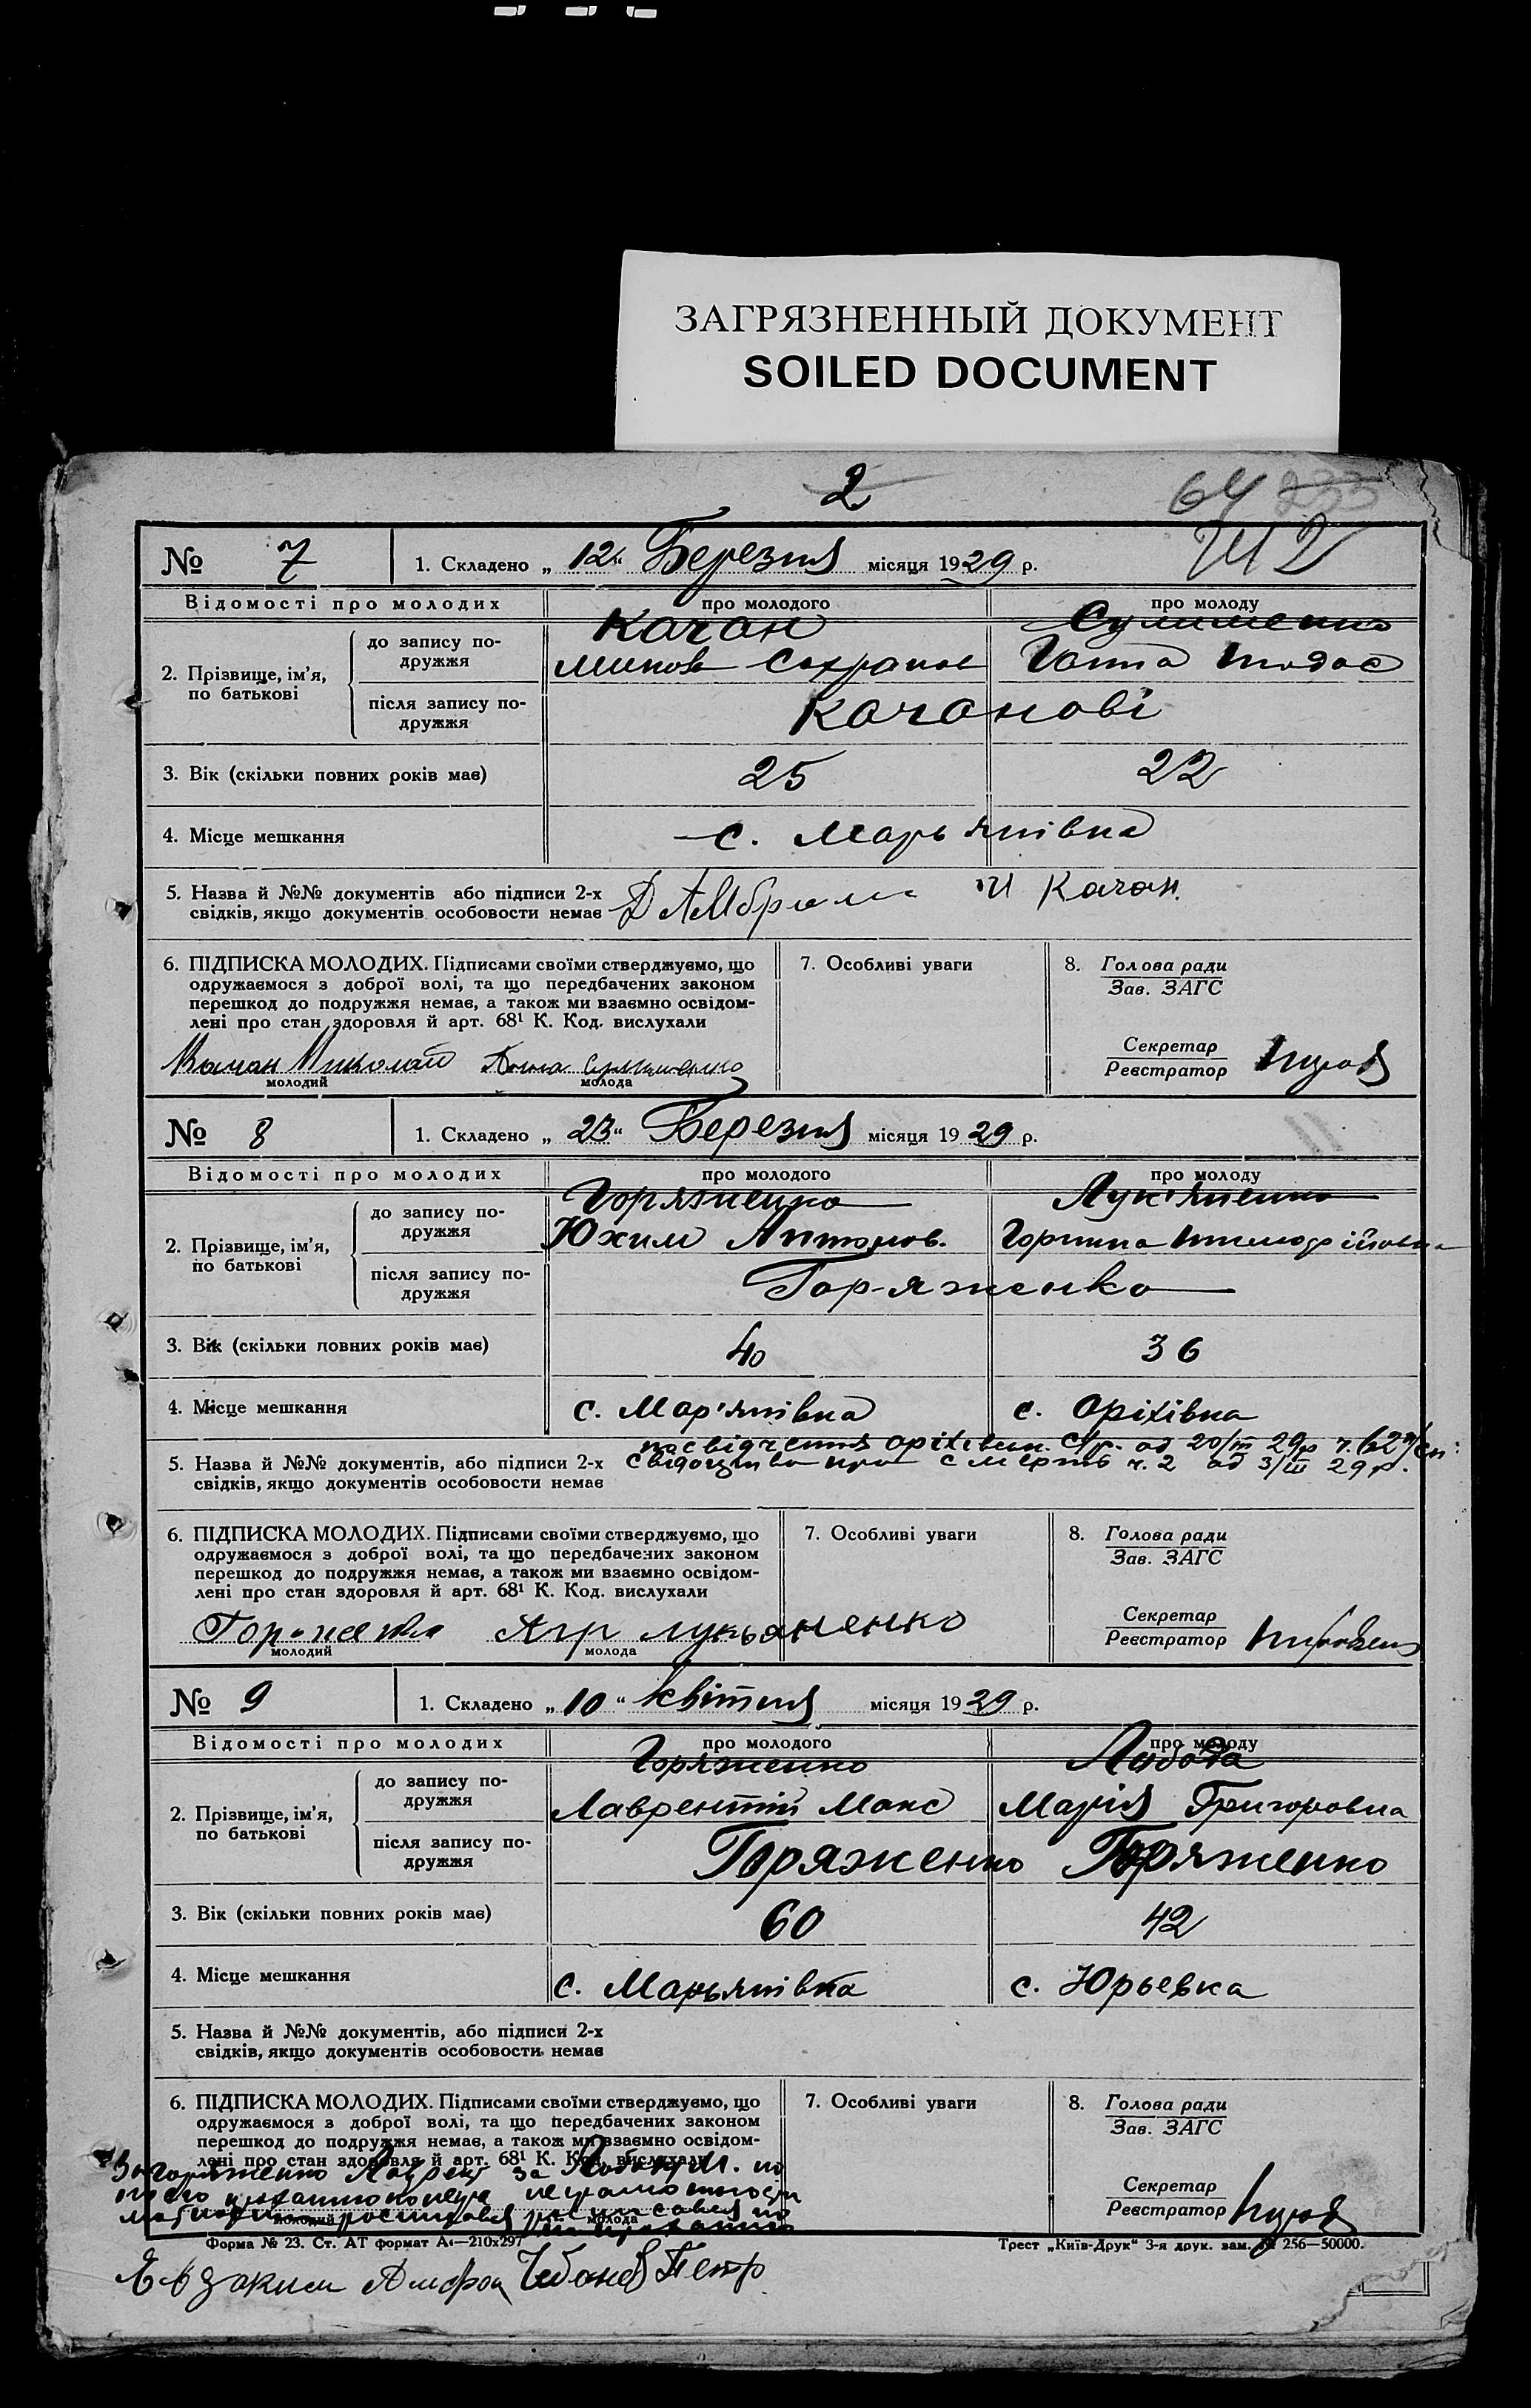 ЗАГРЯЗНЕННЫЙ ДОКУМЕНТ
SOILED DOCUMENT
2
64 233
№ 7 1. Складено „ 12 “ Березня місяця 1929 р.
Відомості про молодих про молодого про молоду
2. Прізвище, ім’я, по батькові
до запису подружжя
Качан
Ганна
після запису подружжя
Качанові
3. Вік (скільки повних років має) 25 22
4. Місце мешкання с. Марьянівка
5. Назва й №№ документів або підписи 2-х И Качан.
свідків, якщо документів особовости немає
6. ПІДПИСКА МОЛОДИХ. Підписами своїми стверджуємо, що
одружаємося з доброї волі, та що передбачених законом
перешкод до подружжя немає, а також ми взаємно освідом-
лені про стан здоровля й арт. 68¹ К. Код. вислухали
Качан Николай Анна
молодий молода
7. Особливі уваги
8. Голова ради
Зав. ЗАГС
Секретар
Реєстратор
№ 8 1. Складено „ 23 “ Березня місяця 1929 р.
Відомості про молодих про молодого про молоду
2. Прізвище, ім’я, по батькові
до запису подружжя
Горяженко Лук'яненко
Юхим Антонов. Горпина
після запису подружжя
Гор-яженко
3. Вік (скільки повних років має) 40 36
4. Місце мешкання с. Мар'янівка с. Оріхівка
посвідчення Оріхівськ. с/р. од 20/III 29р ч. 62
5. Назва й №№ документів, або підписи 2-х свідоцтво про смерть ч. 2 од 3/III 29 р.
свідків, якщо документів особовости немає
6. ПІДПИСКА МОЛОДИХ. Підписами своїми стверджуємо, що
одружаємося з доброї волі, та що передбачених законом
перешкод до подружжя немає, а також ми взаємно освідом-
лені про стан здоровля й арт. 68¹ К. Код. вислухали
Агр лукьяненко
молодий молода
7. Особливі уваги
8. Голова ради
Зав. ЗАГС
Секретар
Реєстратор
№ 9 1. Складено „ 10 “ квітня місяця 1929 р.
Відомості про молодих про молодого про молоду
2. Прізвище, ім’я, по батькові
до запису подружжя
Горяженко Лобода
Лаврентій Макс Марія Григоровна
після запису подружжя
Горяженко Горяженко
3. Вік (скільки повних років має) 60 42
4. Місце мешкання с. Марьянівка с. Юрьевка
5. Назва й №№ документів, або підписи 2-х
свідків, якщо документів особовости немає
6. ПІДПИСКА МОЛОДИХ. Підписами своїми стверджуємо, що
одружаємося з доброї волі, та що передбачених законом
перешкод до подружжя немає, а також ми взаємно освідом-
лені про стан здоровля й арт. 68¹ К. Код. вислухали
молодий молода
7. Особливі уваги
8. Голова ради
Зав. ЗАГС
Секретар
Реєстратор
Форма № 23. Ст. АТ формат А4—210х297
Трест „Київ-Друк“ 3-я друк. зам. № 256—50000.
Петр